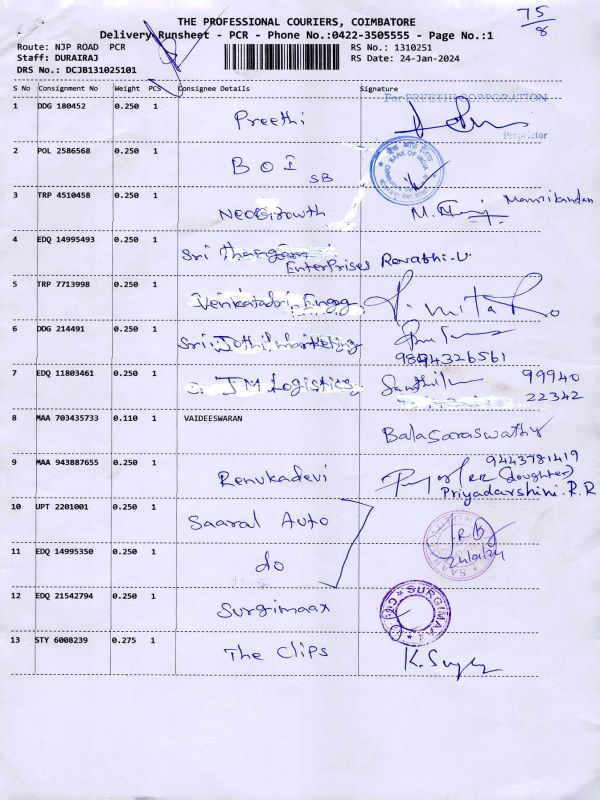 75/8
THE PROFESSIONAL COURIERS, COIMBATORE
Delivery Runsheet - PCR - Phone No.:0422-3505555 - Page No.:1
Route: NJP ROAD PCR
RS No.: 1310251
Staff: DURAIRAJ
RS Date: 24-Jan-2024
DRS No.: DCJB131025101
S No Consignment No Weight PCS Consignee Details Signature
For PREETHI CORPORATION
1 DDG 180452 0.250 1 Preethi
Proprietor
2 POL 2586568 0.250 1 BOI SB
BANK OF INDIA
3 TRP 4510458 0.250 1 NeoGrowth Manikandan
4 EDQ 14995493 0.250 1 Sri Thangam
Enterprises Revathi.U
5 TRP 7713998 0.250 1 Venkatadri Engg
6 DDG 214491 0.250 1 Sri Jothi marketing
9894326561
7 EDQ 11803461 0.250 1 JM Logistics 99940
22342
8 MAA 703435733 0.110 1 VAIDEESWARAN Balasaraswathy
9443781419
9 MAA 943887655 0.250 1 Renukadevi (daughter)
Priyadarshini.R.R
10 UPT 2201001 0.250 1 Saaral Auto
11 EDQ 14995350 0.250 1 do 24/01/24
12 EDQ 21542794 0.250 1 Surgimaax SURGIMAAX
13 STY 6008239 0.275 1 The Clips